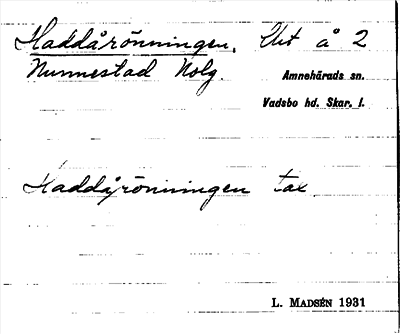 Haddårönningen, Utt å 2
Nunnestad Nolg.
Amnehärads sn.
Vadsbo hd. Skar. l.
Haddårönningen tax
L. MADSÉN 1931